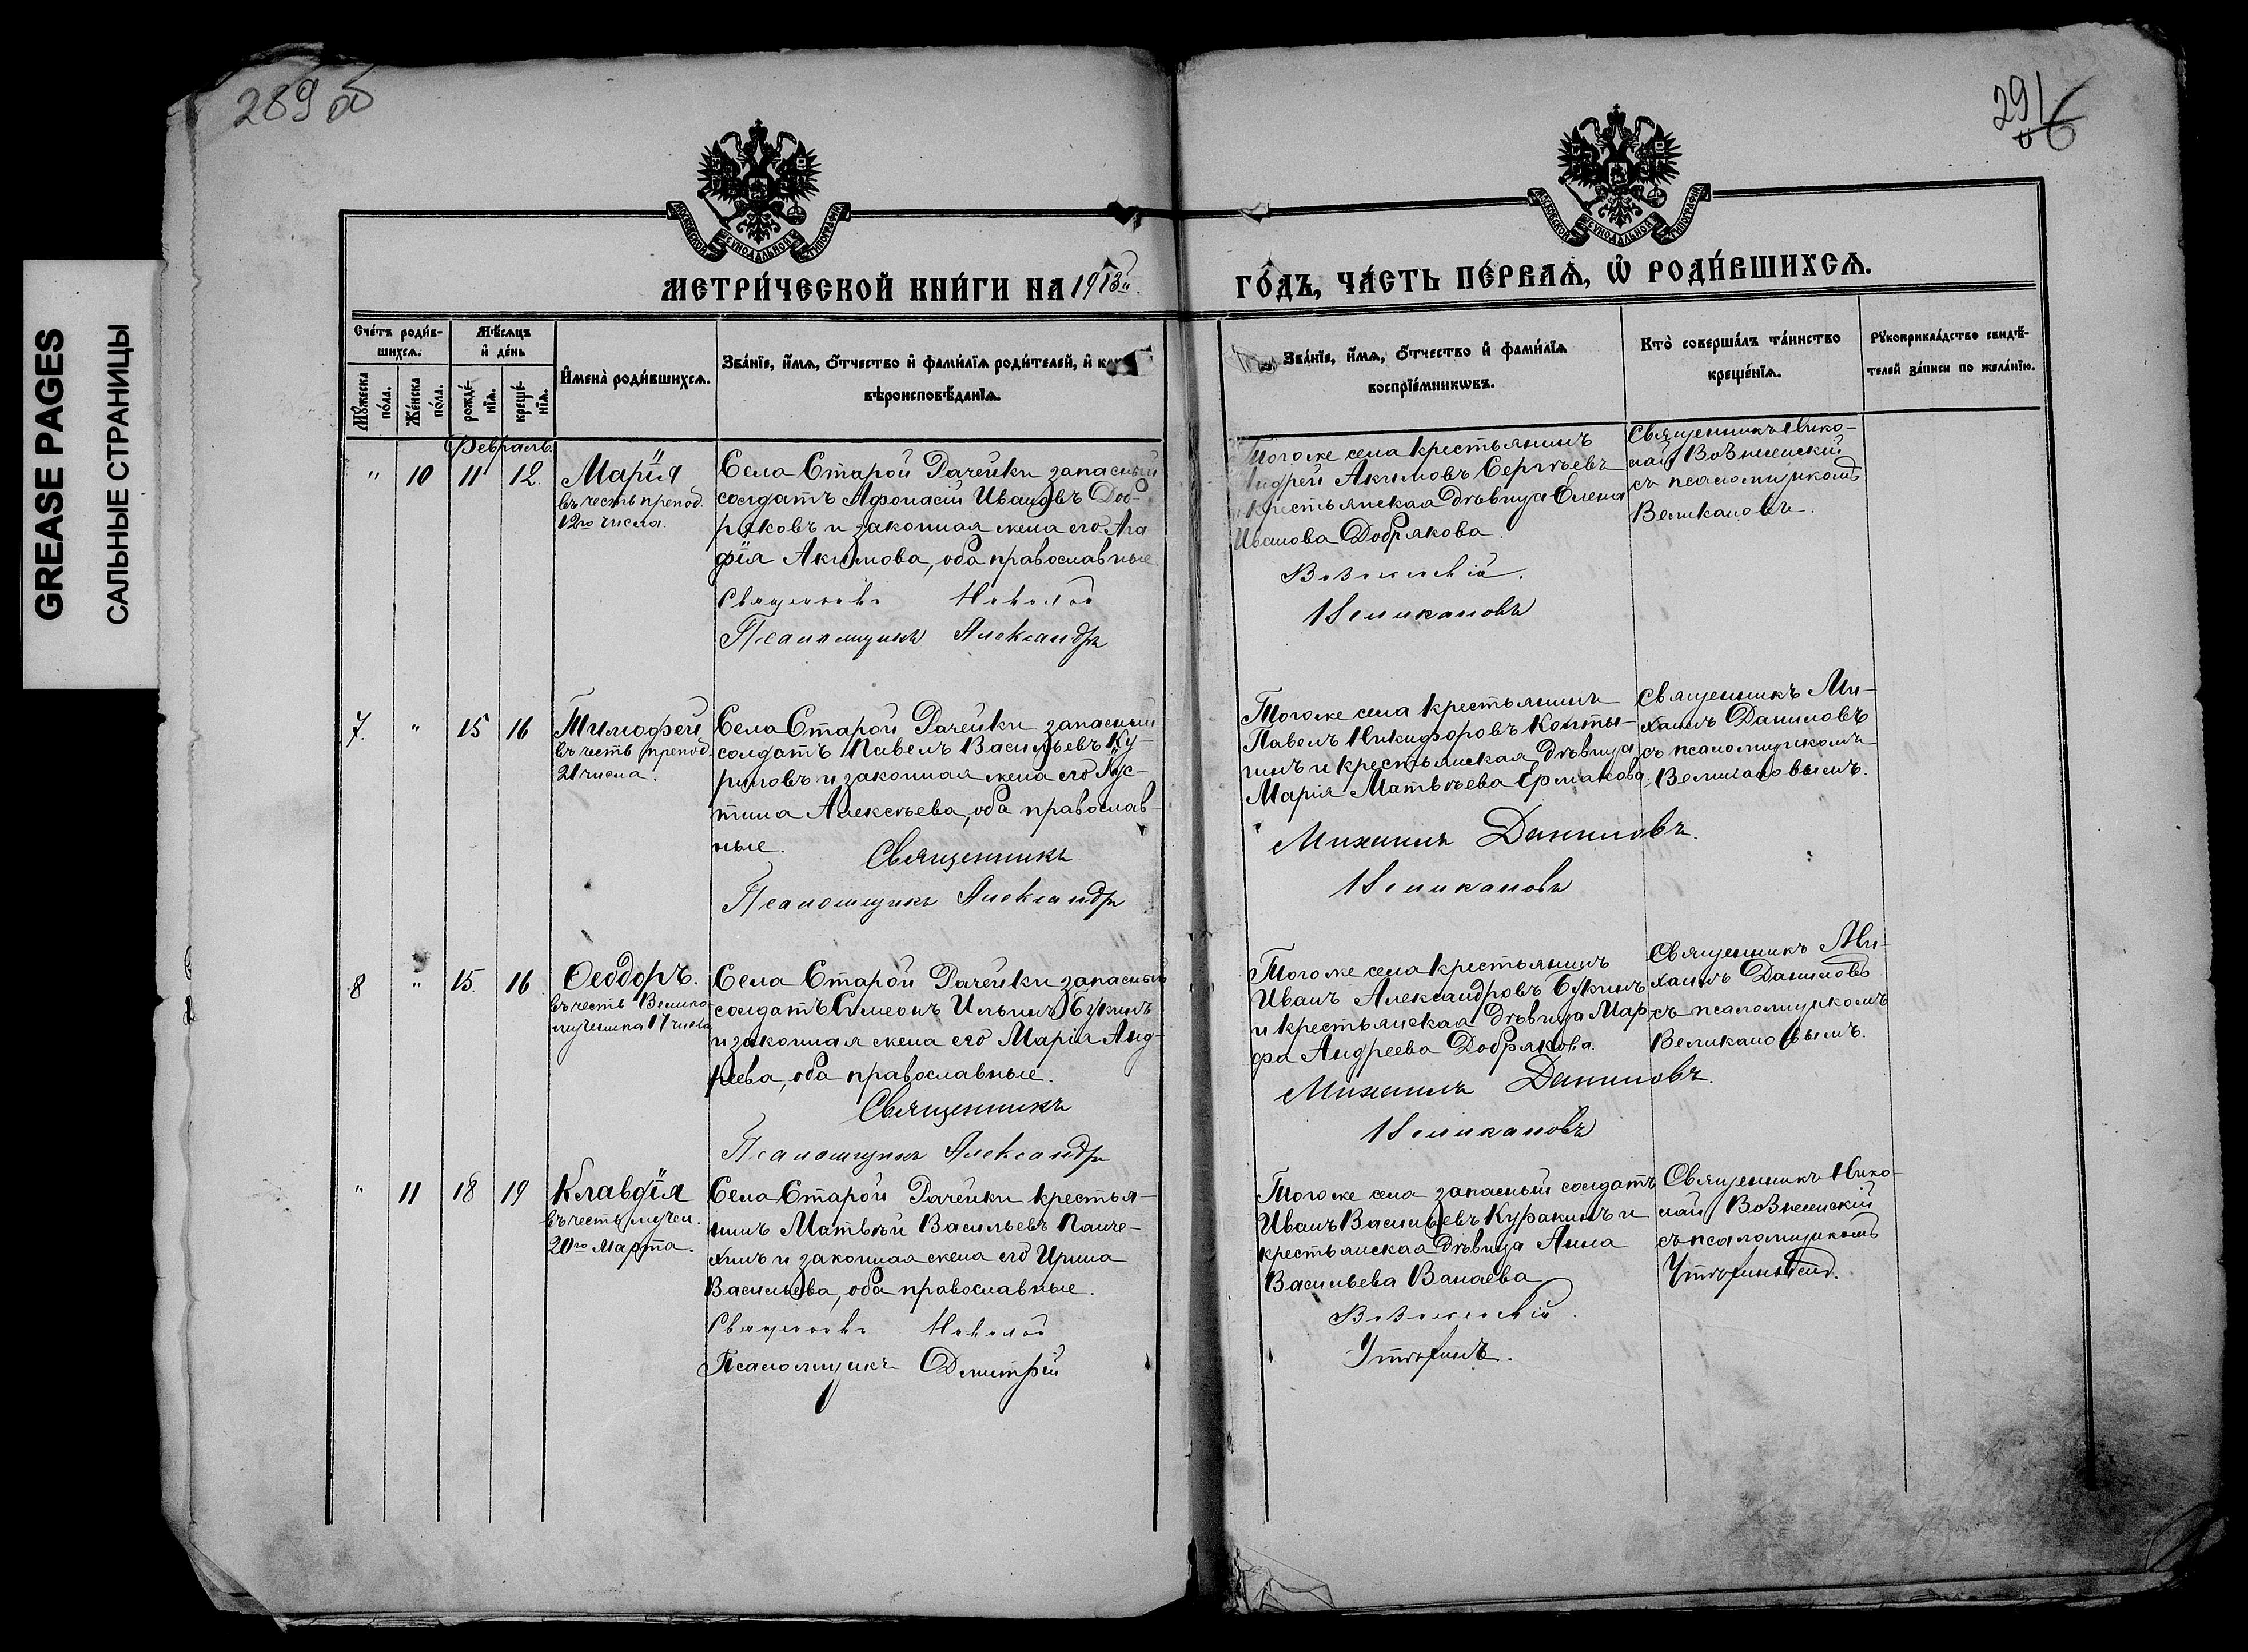 GREASE PAGES
САЛЬНЫЕ СТРАНИЦЫ
289 об
291
МОСКОВСКОЙ СѴНОДАЛЬНОЙ ТИПОГРАФІИ
МОСКОВСКОЙ СѴНОДАЛЬНОЙ ТИПОГРАФІИ
МЕТРИ́ЧЕСКОЙ КНИ́ГИ НА 1913й
ГО́ДЪ, ЧА́СТЬ ПЕ́РВАѦ, Ѡ҆ РОДИ́ВШИХСѦ.
Сче́тъ роди́в-
шихсѧ.
Мꙋ́жеска
по́ла.
Же́нска
по́ла.
Мѣ́сѧцъ
и҆ де́нь
рожде́-
нїѧ.
креще́-
нїѧ.
И҆мена̀ роди́вшихсѧ.
Зва́нїе, и҆́мѧ, ѻ҆́тчество и҆ фами́лїѧ роди́телей, и҆
вѣроисповѣ́данїѧ.
Зва́нїе, и҆́мѧ, ѻ҆́тчество и҆ фами́лїѧ
воспрїе́мникѡвъ.
Кто̀ соверша́лъ та́инство
креще́нїѧ.
Рꙋкоприкла́дство свидѣ́-
телей за́писи по жела́нїю.
Февраль.
" 10 11 12.
Марія
въ честь препод.
12го числа.
Села Старой Рачейки запасный
солдатъ Афонасій Ивановъ Доб-
ряковъ и законная жена его Ага
фія Акимова, оба православные
Священникъ Николай
Псаломщикъ Александръ
Тогоже села крестьянинъ
Андрей Акимовъ Сергѣевъ
и крестьянская дѣвица Елена
Иванова Добрякова.
Вознесенскій.
Великановъ
Священникъ Нико-
лай Вознесенскій
съ псаломщикомъ
Великановъ.
7. " 15 16
Тимофей
въ честь препод.
21 числа.
Села Старой Рачейки запасный
солдатъ Павелъ Васильевъ Ку-
риловъ и законная жена его Іус-
тина Алексѣева, оба православ-
ные.
Священникъ
Псаломщикъ Александръ
Тогоже села крестьянинъ
Павелъ Никифоровъ Копты-
гинъ и крестьянская дѣвица
Марія Матвѣева Ермакова.
Михаилъ Даниловъ.
Великановъ
Священникъ Ми-
хаилъ Даниловъ
съ псаломщикомъ
Великановымъ.
8 " 15. 16
Ѳеодоръ.
въ честь Велико
мученика 17 числа
Села Старой Рачейки запасный
солдатъ Симеонъ Ильинъ Букинъ
и законная жена его Марія Анд-
реева, оба православные.
Священникъ
Псаломщикъ Александръ
Тогоже села крестьянинъ
Иванъ Александровъ Букинъ
и крестьянская дѣвица Мар-
фа Андреева Добрякова.
Михаилъ Даниловъ.
Великановъ
Священникъ Ми-
хаилъ Даниловъ
съ псаломщикомъ
Великановымъ.
" 11 18 19
Клавдія
въ честь мучен.
20го Марта.
Села Старой Рачейки крестья-
нинъ Матвѣй Васильевъ Панче-
хинъ и законная жена его Ирина
Васильева, оба православные.
Священникъ Николай
Псаломщикъ Димитрій
Тогоже села запасный солдатъ
Иванъ Васильевъ Куракинъ и
крестьянская дѣвица Анна
Васильева Ванаева
Вознесенскій.
Утѣхинъ.
Священникъ Нико-
лай Вознесенскій
съ псаломщикомъ